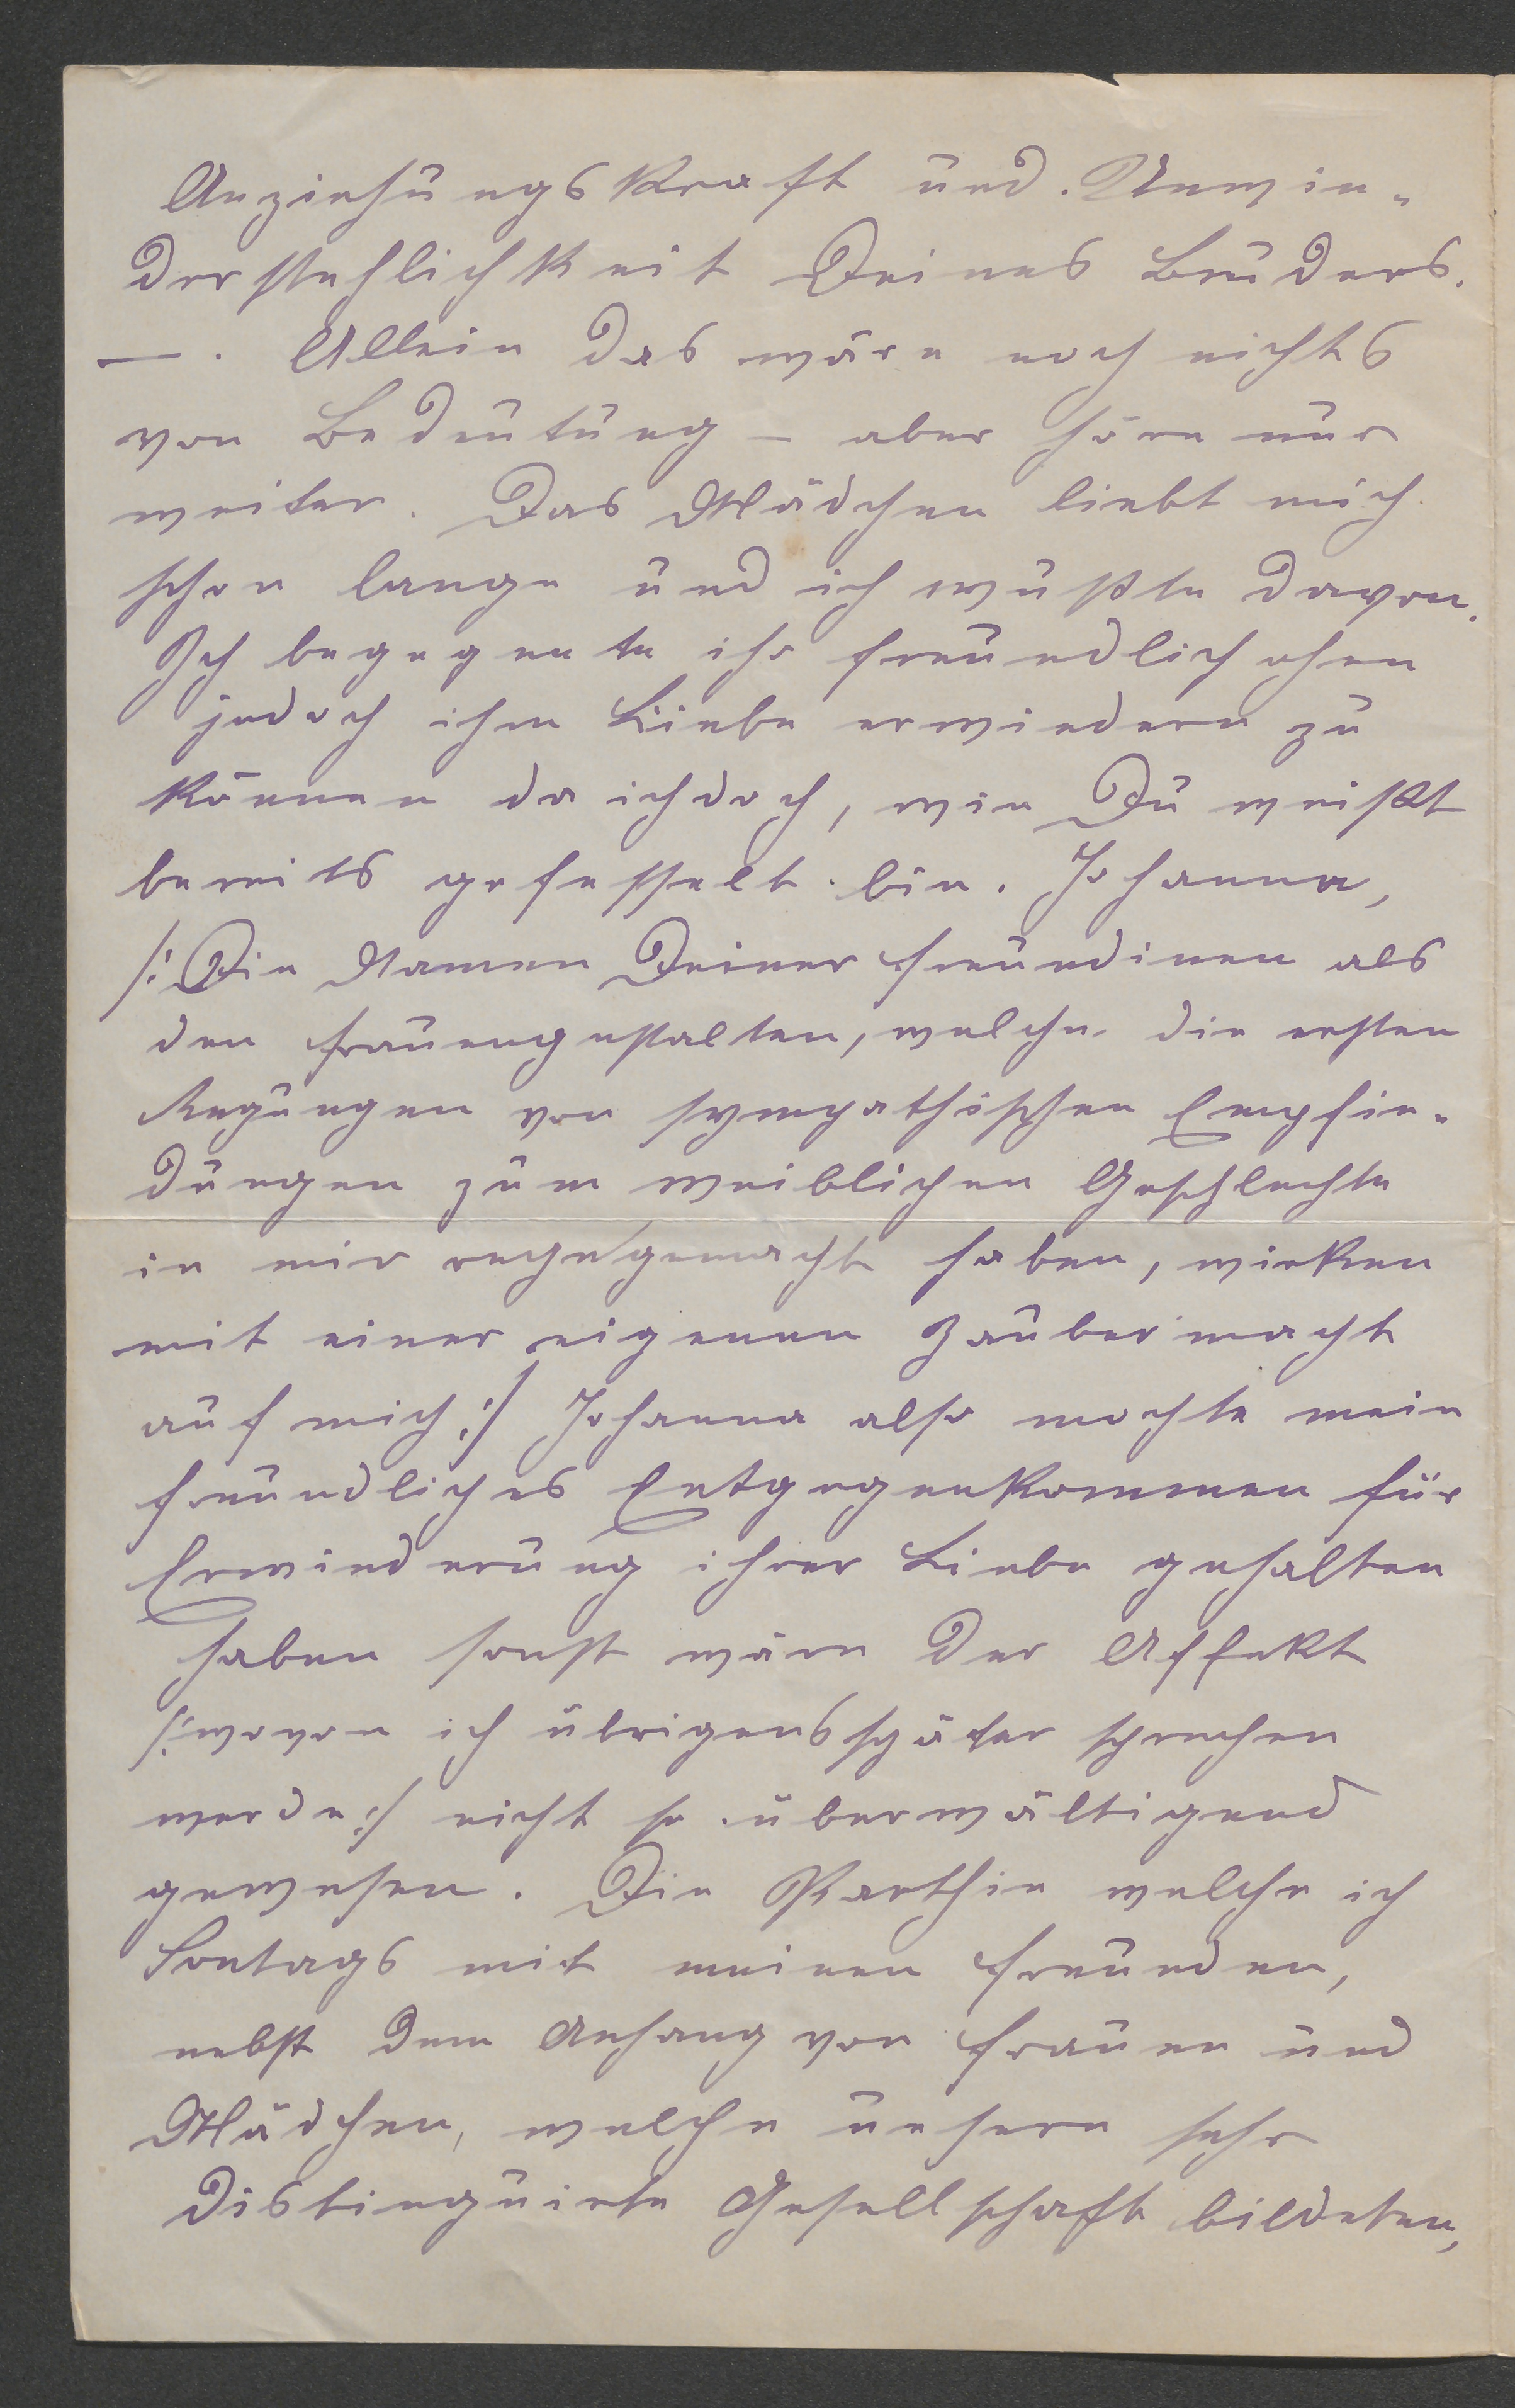 Anziehungskraft und Unwie-
derstehlichkeit Deines Bruders.
—. Allein das wäre noch nichts
von Bedeutung – aber höre nur
weiter. Das Mädchen liebt mich
schon lange und ich wußte davon.
Ich begegnete ihr freundlich ohne
jedoch ihre Liebe erwiedern zu
können da ich doch, wie Du weißt
bereits gefesselt bin. Johanna,
/: Die Namen Deiner Freundinen als
den Frauengestalten, welche die ersten
Regungen von sympathischen Empfin-
dungen zum weiblichen Geschlechte
in mir rege gemacht haben, wirken
mit einer eigenen Zaubermacht
auf mich :/ Johanna also mochte mein
freundliches Entgegenkommen für
Erwiederung ihrer Liebe gehalten
haben sonst wäre der Affekt
/: wovon ich übrigens später sprechen
werde :/ nicht so überwältigend
gewesen. Die Parthie welche ich
Sontags mit meinen Freunden,
nebst dem Anhang von Frauen und
Mädchen, welche unsere sehr
distinguirte Gesellschaft bildeten,